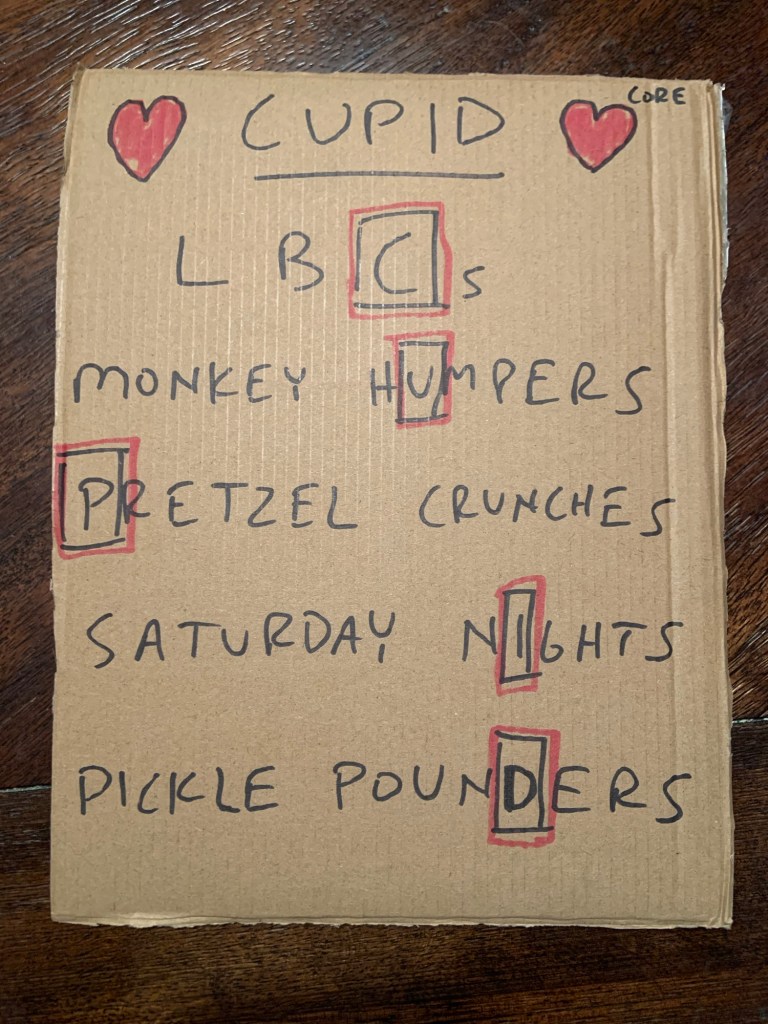 CORE
CUPID
LBCs
MONKEY HUMPERS
PRETZEL CRUNCHES
SATURDAY NIGHTS
PICKLE POUNDERS